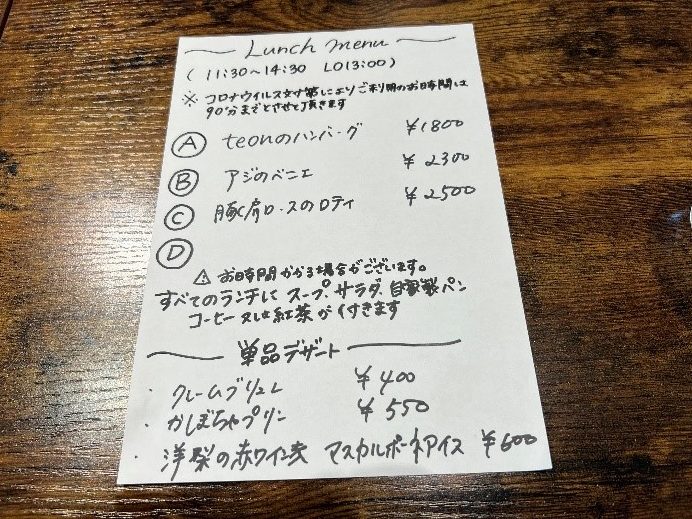 Lunch menu
(11:30~14:30 LO13:00)
※ コロナウイルス対策によりご利用のお時間は
90分までとさせて頂きます
Ⓐ teonのハンバーグ ¥1800
Ⓑ アジのベニエ ¥2300
Ⓒ 豚肩ロースのロティ ¥2500
Ⓓ
⚠ お時間かかる場合がございます。
すべてのランチに スープ、サラダ、自家製パン
コーヒー又は紅茶が付きます
単品デザート
・クレームブリュレ ¥400
・かぼちゃプリン ¥550
・洋梨の赤ワイン煮 マスカルポーネアイス ¥600